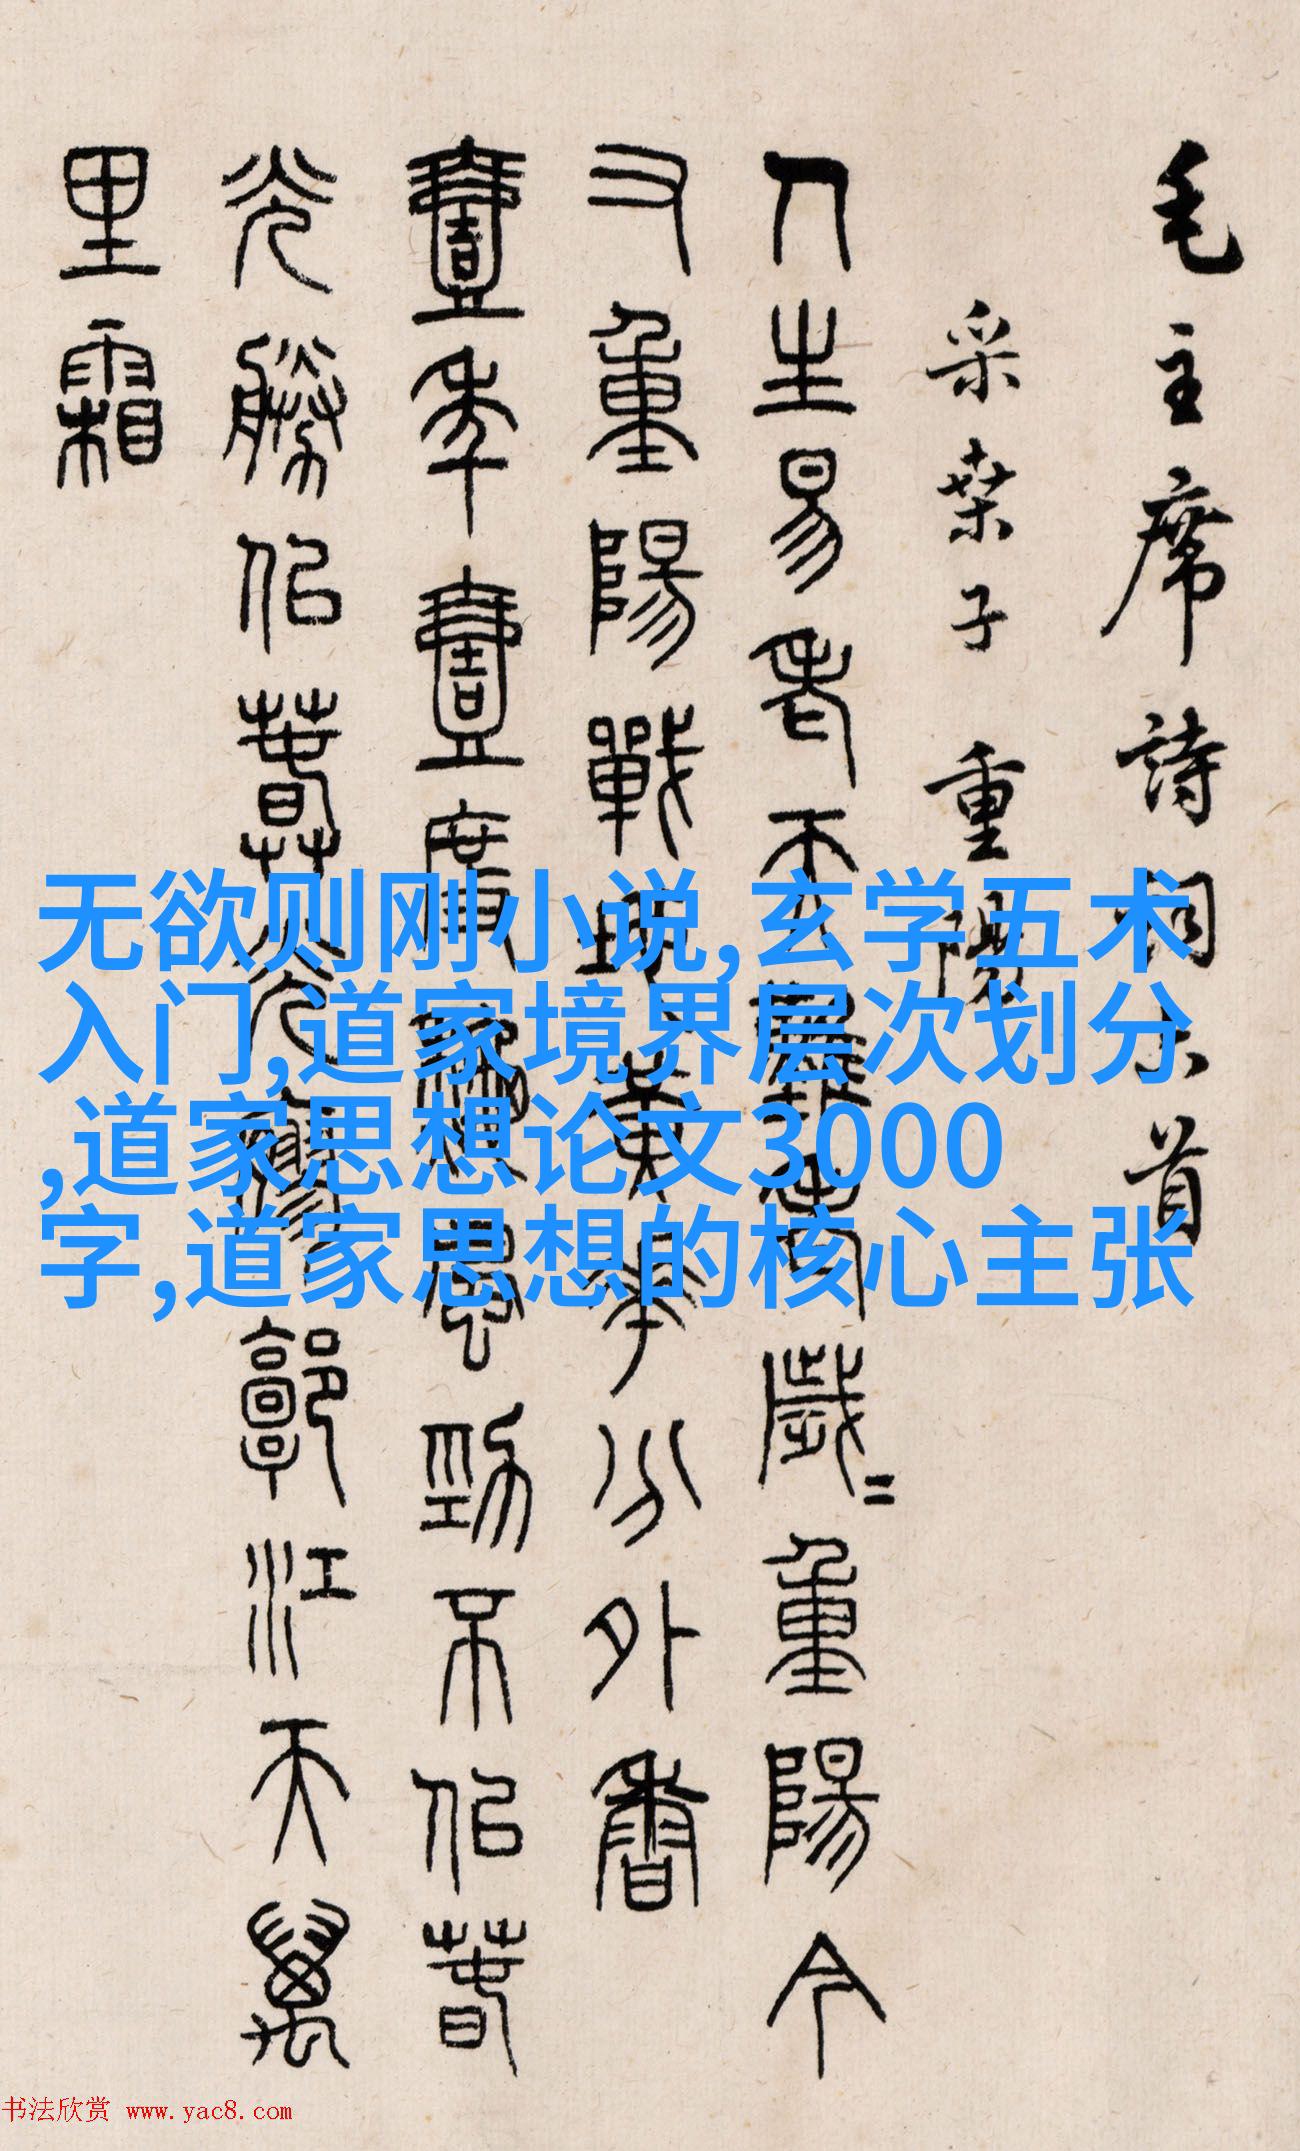 毛主席詩詞六首
采桑子 重陽
人生易老天難老歲〻重陽今
又重陽戰地黃華分外香
壹年壹度秋風勁不佀春
光勝佀春光廖郭江天萬
里霜
无欲则刚小说,玄学五术
入门,道家境界层次划分
,道家思想论文3000
字,道家思想的核心主张
书法欣赏 www.yac8.com